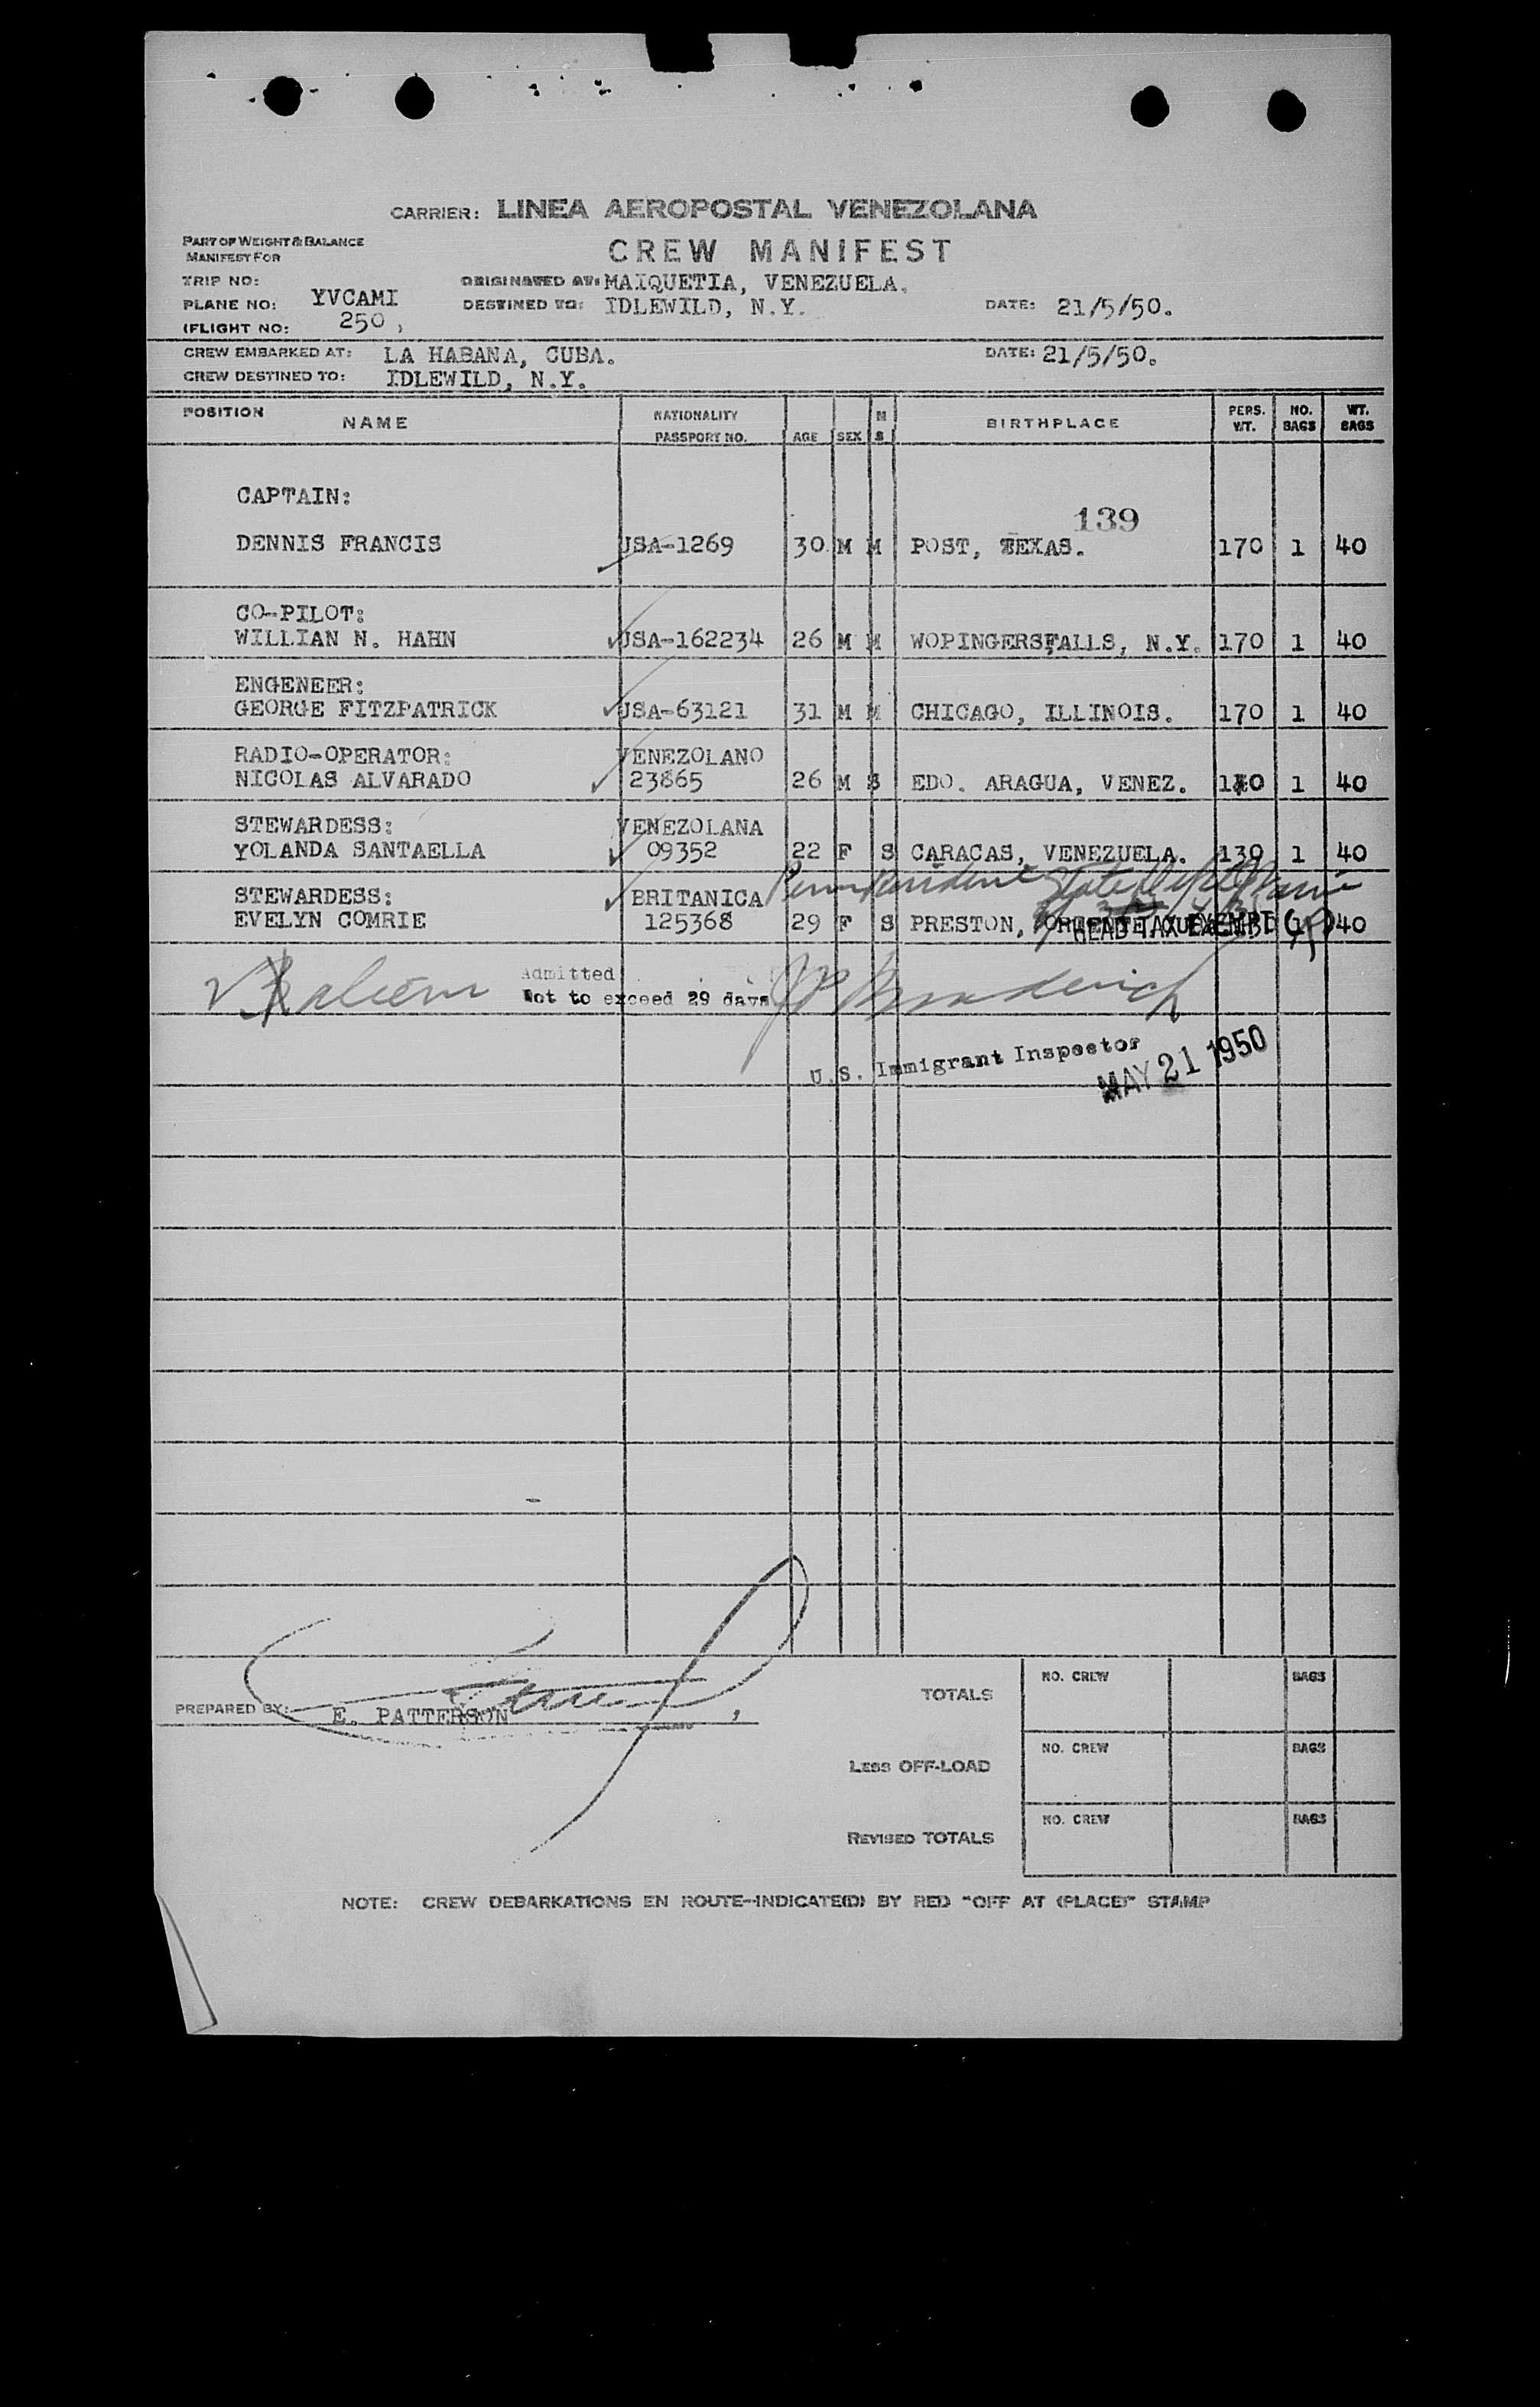 CARRIER: LINEA AEROPOSTAL VENEZOLANA
PART OF WEIGHT & BALANCE
MANIFEST FOR
CREW MANIFEST
TRIP NO:
ORIGINATED AT: MAIQUETIA, VENEZUELA.
PLANE NO: YVCAMI
DESTINED TO: IDLEWILD, N.Y.
DATE: 21/5/50.
(FLIGHT NO: 250,
CREW EMBARKED AT: LA HABANA, CUBA.
DATE: 21/5/50.
CREW DESTINED TO: IDLEWILD, N.Y.
POSITION NAME NATIONALITY PASSPORT NO. AGE SEX M S BIRTHPLACE PERS. WT. NO. BAGS WT. BAGS
CAPTAIN:
139
DENNIS FRANCIS USA-1269 30 M M POST, TEXAS. 170 1 40
CO-PILOT:
WILLIAN N. HAHN USA-162234 26 M M WOPINGERSFALLS, N.Y. 170 1 40
ENGENEER:
GEORGE FITZPATRICK USA-63121 31 M M CHICAGO, ILLINOIS. 170 1 40
RADIO-OPERATOR: VENEZOLANO
NICOLAS ALVARADO 23865 26 M S EDO. ARAGUA, VENEZ. 1 0 1 40
STEWARDESS: VENEZOLANA
YOLANDA SANTAELLA 09352 22 F S CARACAS, VENEZUELA. 130 1 40
STEWARDESS: BRITANICA
EVELYN COMRIE 125368 29 F S PRESTON, 1 40
HEAD TAX EXEMPT ( )
Admitted
Not to exceed 29 days
U.S. Immigrant Inspector
MAY 21 1950
PREPARED BY: E. PATTERSON
TOTALS NO. CREW BAGS
LESS OFF-LOAD NO. CREW BAGS
REVISED TOTALS NO. CREW BAGS
NOTE: CREW DEBARKATIONS EN ROUTE-INDICATE(D) BY RED "OFF AT (PLACE)" STAMP